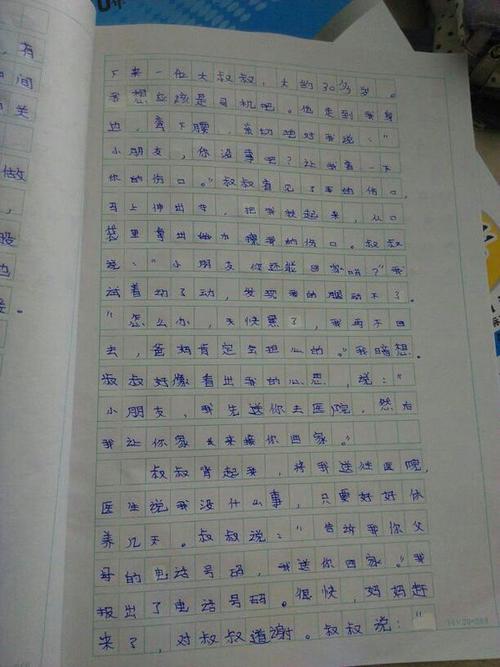 下来一位大叔叔,大约30多岁。
我想应该是司机吧。他走到我身
边,弯下腰,亲切地对我说:"
小朋友,你没事吧?让我看一下
你的伤口。"叔叔看见了我的伤口,
马上伸出手,把我扶起来,从口
袋里拿出 擦我的伤口。叔叔
说:"小朋友你还能回家吗?"我
试着动了动,发现我的腿动不了。
"怎么办,天快黑了,我再不回
去,爸妈肯定会担心的。"我暗想。
叔叔好像看出我的心思,说:"
小朋友,我先送你去医院,然后
我让你家人来接你回家。"
叔叔背起我,将我送往医院,
医生说我没什么事,只要好好休
养几天。叔叔说:"告诉我你父
母的电话号码,我送你回家。"我
报出了电话号码。很快,妈妈赶
来了,对叔叔道谢。叔叔说:"
有
间
关
做
,
股
也
。